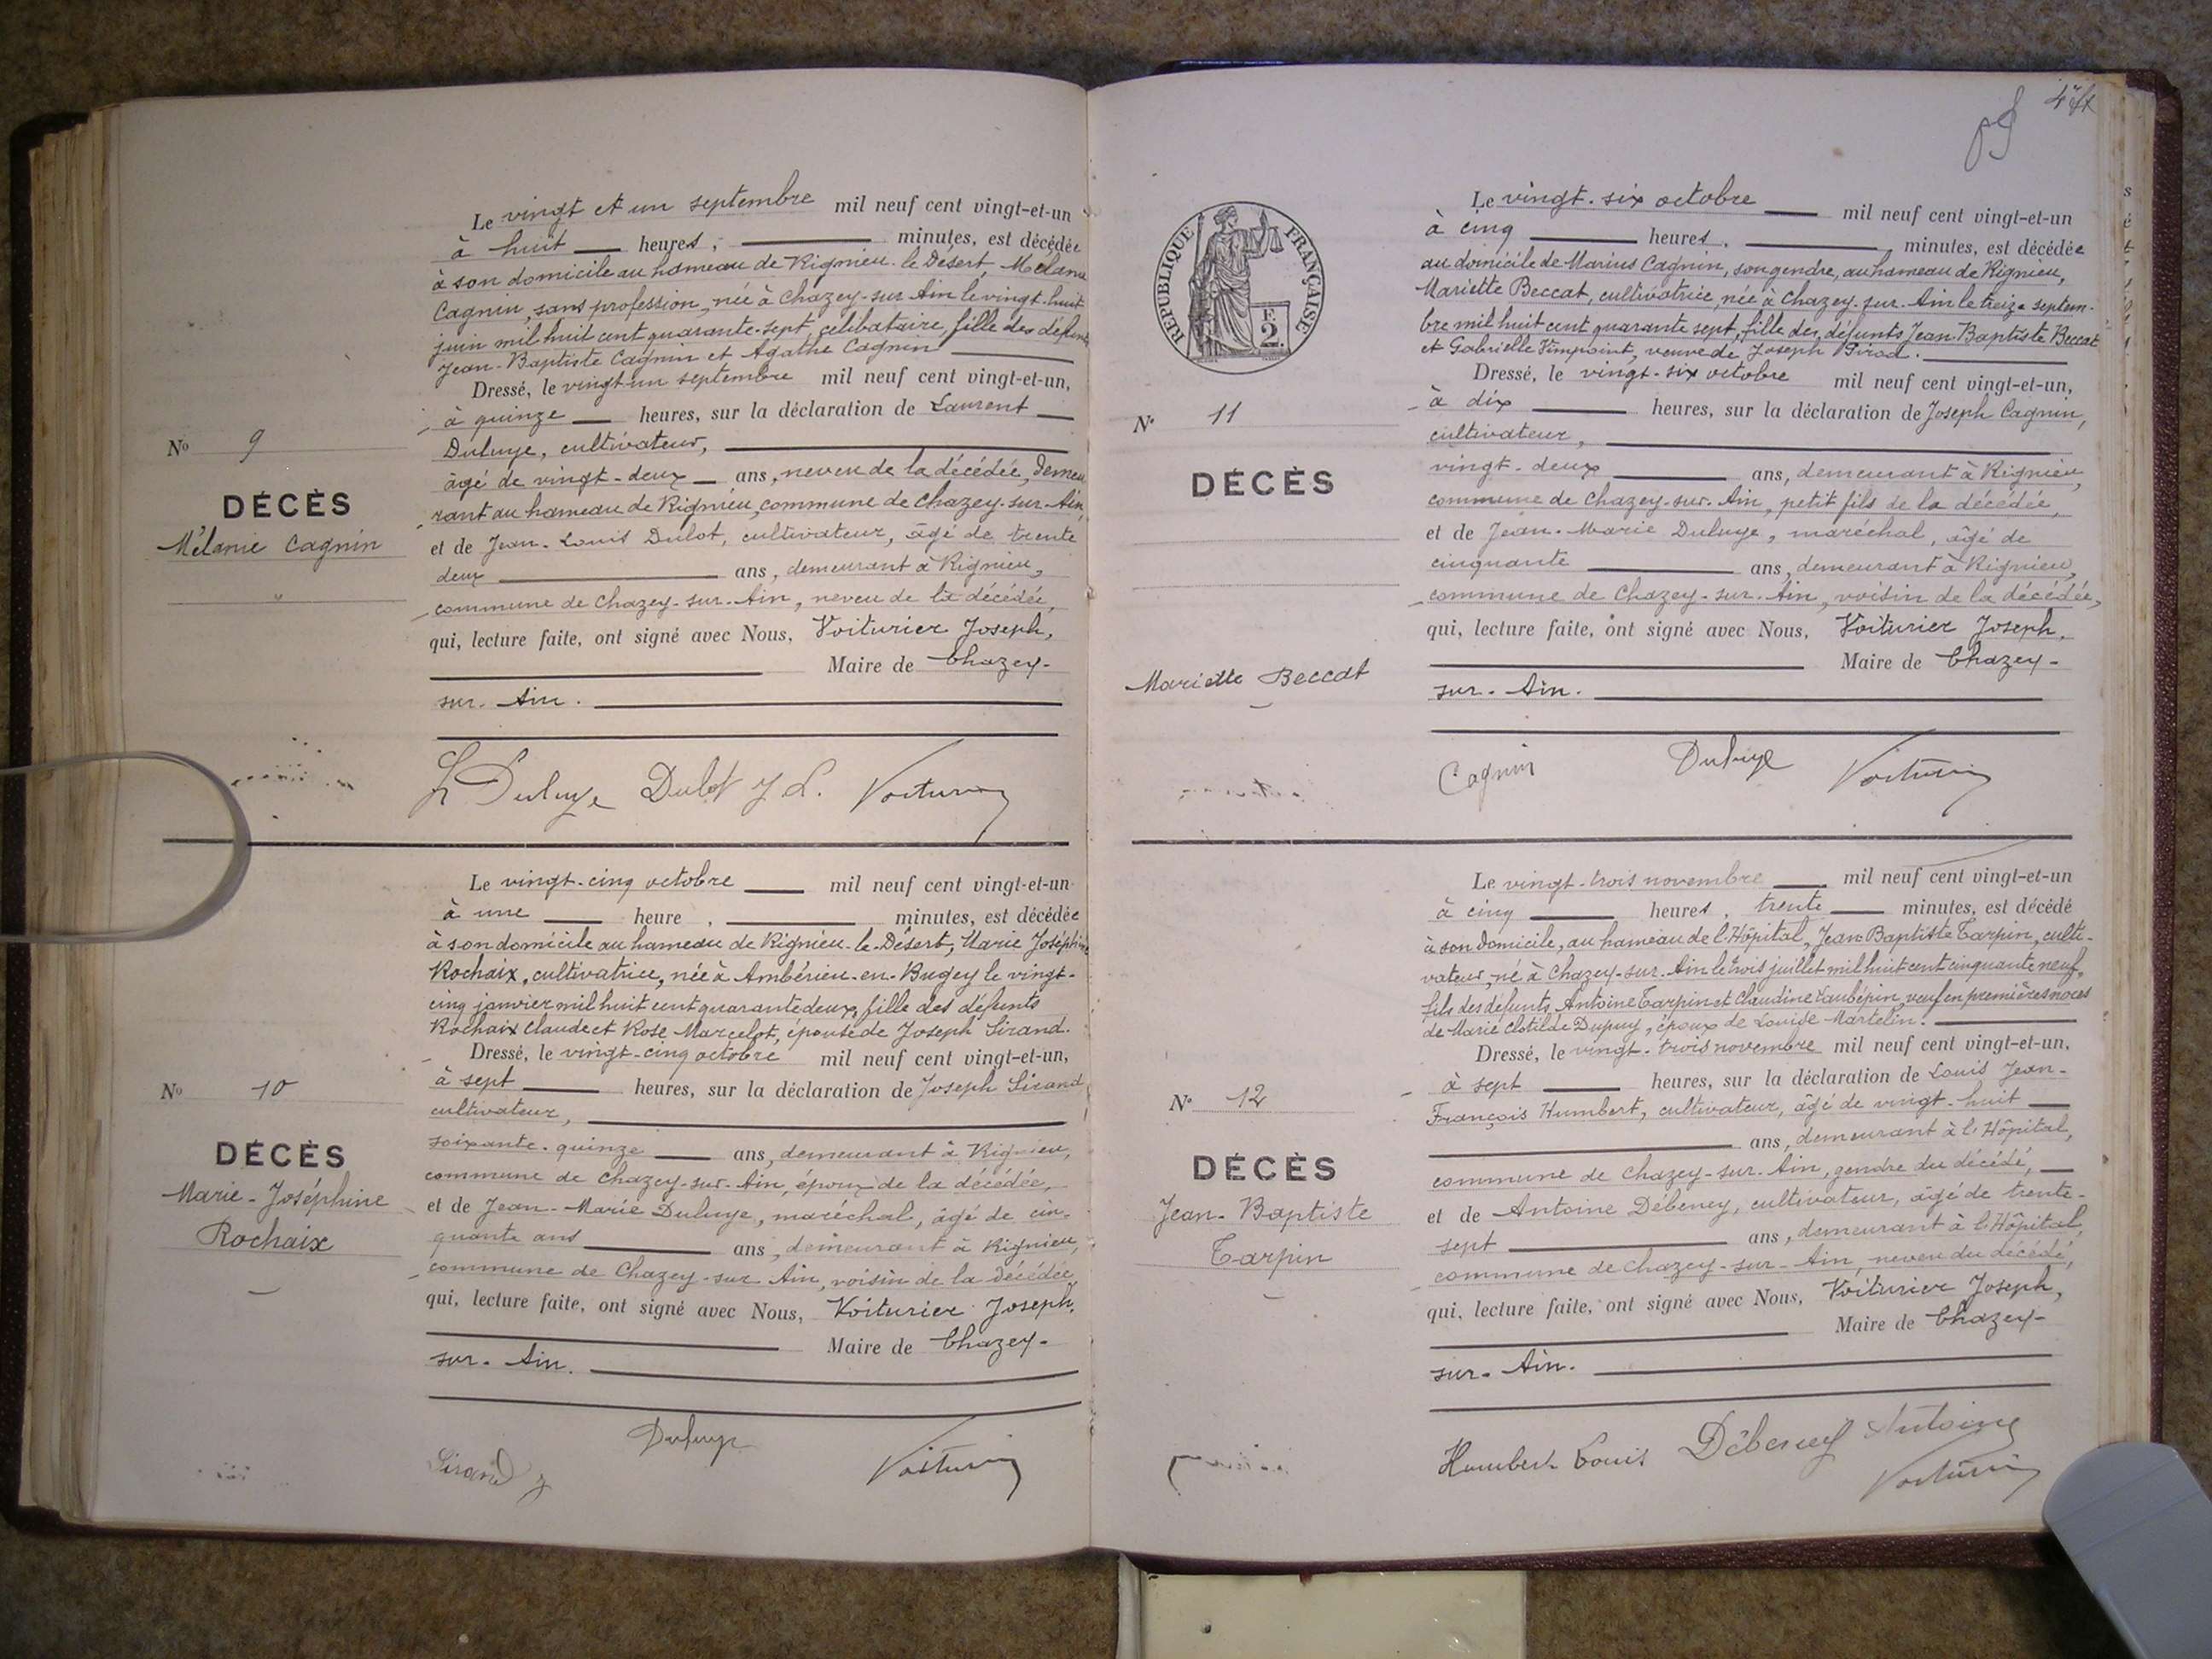 Le vingt et un septembre mil neuf cent vingt-et-un
à huit heures, minutes, est décédée
à son domicile au hameau de Rignieu-le-Désert, Mélanie
Cagnin, sans profession, née à Chazey-sur-Ain le vingt-huit
juin mil huit cent quarante-sept, célibataire, fille des défunts
Jean-Baptiste Cagnin et Agathe Cagnin
Dressé, le vingt-un septembre mil neuf cent vingt-et-un,
à quinze heures, sur la déclaration de Laurent
Duluye, cultivateur,
âgé de vingt-deux ans, neveu de la décédée, demeu
rant au hameau de Rignieu, commune de Chazey-sur-Ain,
et de Jean-Louis Dulot, cultivateur, âgé de trente
deux ans, demeurant à Rignieu,
commune de Chazey-sur-Ain, neveu de la décédée,
qui, lecture faite, ont signé avec Nous, Voiturier Joseph,
Maire de Chazey-
sur-Ain.
No 9
DÉCÈS
Mélanie Cagnin
L Duluye Dulot J L. Voiturier
Le vingt-cinq octobre mil neuf cent vingt-et-un
à une heure, minutes, est décédée
à son domicile au hameau de Rignieu-le-Désert, Marie Joséphine
Rochaix, cultivatrice, née à Ambérieu-en-Bugey le vingt-
cinq janvier mil huit cent quarante deux, fille des défunts
Rochaix Claude et Rose Marcelot, épouse de Joseph Sirand.
Dressé, le vingt-cinq octobre mil neuf cent vingt-et-un,
à sept heures, sur la déclaration de Joseph Sirand
cultivateur,
soixante-quinze ans, demeurant à Rignieu,
commune de Chazey-sur-Ain, époux de la décédée,
et de Jean-Marie Duluye, maréchal, âgé de cin-
quante ans ans, demeurant à Rignieu,
commune de Chazey-sur Ain, voisin de la décédée,
qui, lecture faite, ont signé avec Nous, Voiturier Joseph,
Maire de Chazey-
sur-Ain.
No 10
DÉCÈS
Marie-Joséphine
Rochaix
Sirand J Duluye Voiturier
RÉPUBLIQUE FRANÇAISE
2.
Le vingt-six octobre mil neuf cent vingt-et-un
à cinq heures, minutes, est décédée
au domicile de Marius Cagnin, son gendre, au hameau de Rignieu,
Mariette Beccat, cultivatrice, née à Chazey-sur-Ain le treize septem-
bre mil huit cent quarante sept, fille des défunts Jean-Baptiste Beccat
et Gabrielle veuve de Joseph Girod.
Dressé, le vingt-six octobre mil neuf cent vingt-et-un,
à dix heures, sur la déclaration de Joseph Cagnin,
cultivateur,
vingt-deux ans, demeurant à Rignieu,
commune de Chazey-sur-Ain, petit fils de la décédée,
et de Jean-Marie Duluye, maréchal, âgé de
cinquante ans, demeurant à Rignieu,
commune de Chazey-sur-Ain, voisin de la décédée,
qui, lecture faite, ont signé avec Nous, Voiturier Joseph,
Maire de Chazey-
sur-Ain.
No 11
DÉCÈS
Mariette Beccat
Cagnin Duluye Voiturier
Le vingt-trois novembre mil neuf cent vingt-et-un
à cinq heures, trente minutes, est décédé
à son domicile, au hameau de l'Hôpital, Jean Baptiste Tarpin, culti-
vateur, né à Chazey-sur-Ain le trois juillet mil huit cent cinquante neuf,
fils des défunts Antoine Tarpin et Claudine Vaubépin, veuf en premières noces
de Marie Clotilde Dupuy, époux de Louise Martelin.
Dressé, le vingt-trois novembre mil neuf cent vingt-et-un,
à sept heures, sur la déclaration de Louis Jean-
François Humbert, cultivateur, âgé de vingt-huit
ans, demeurant à l'Hôpital,
commune de Chazey-sur-Ain, gendre du décédé,
et de Antoine Débeney, cultivateur, âgé de trente-
sept ans, demeurant à l'Hôpital,
commune de Chazey-sur-Ain, neveu du décédé,
qui, lecture faite, ont signé avec Nous, Voiturier Joseph,
Maire de Chazey-
sur-Ain.
No 12
DÉCÈS
Jean-Baptiste
Tarpin
Humbert Louis Débeney Antoine
Voiturier